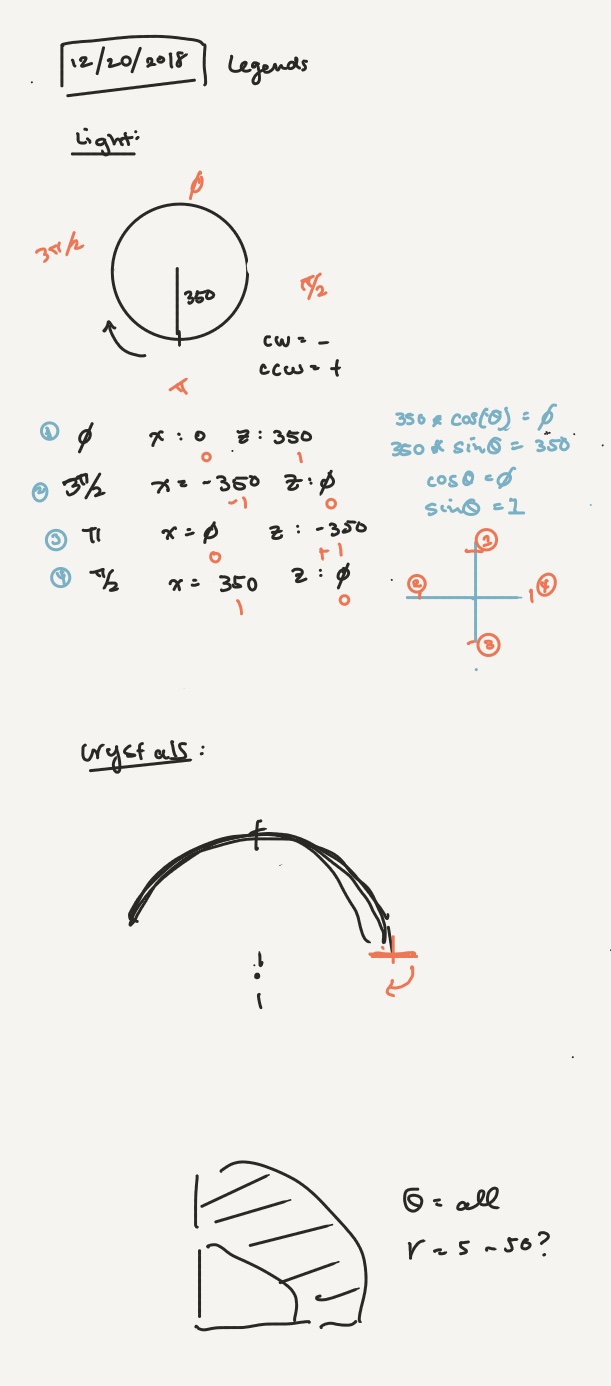 12/20/2018 Legends
Light:
φ
3π/2
350
π/2
cw = -
ccw = +
π
① φ x : 0 z : 350
0 1
② 3π/2 x = -350 z : φ
-1 0
③ π x = φ z : -350
0 +1
④ π/2 x = 350 z : φ
1 0
350 * cos(θ) = φ
350 * sinθ = 350
cosθ = φ
sinθ = 1
①
② ④
③
Crystals:
θ = all
r = 5 ~ 50?